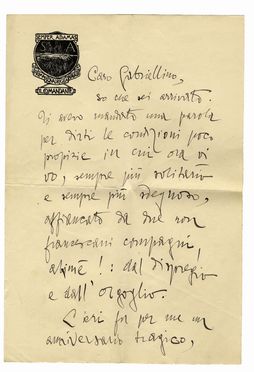 SEMPER ADAMAS
IL COMANDANTE
Caro Gabriellino,
so che sei arrivato.
Ti avevo mandato una parola
per dirti le condizioni poco
propizie in cui ora vi
vo, sempre più solitario
e sempre più sdegnoso,
affiancato da due non
francescani compagni,
ahimè!: dal Dispregio
e dall'Orgoglio.
L'ieri fu per me un
anniversario tragico,